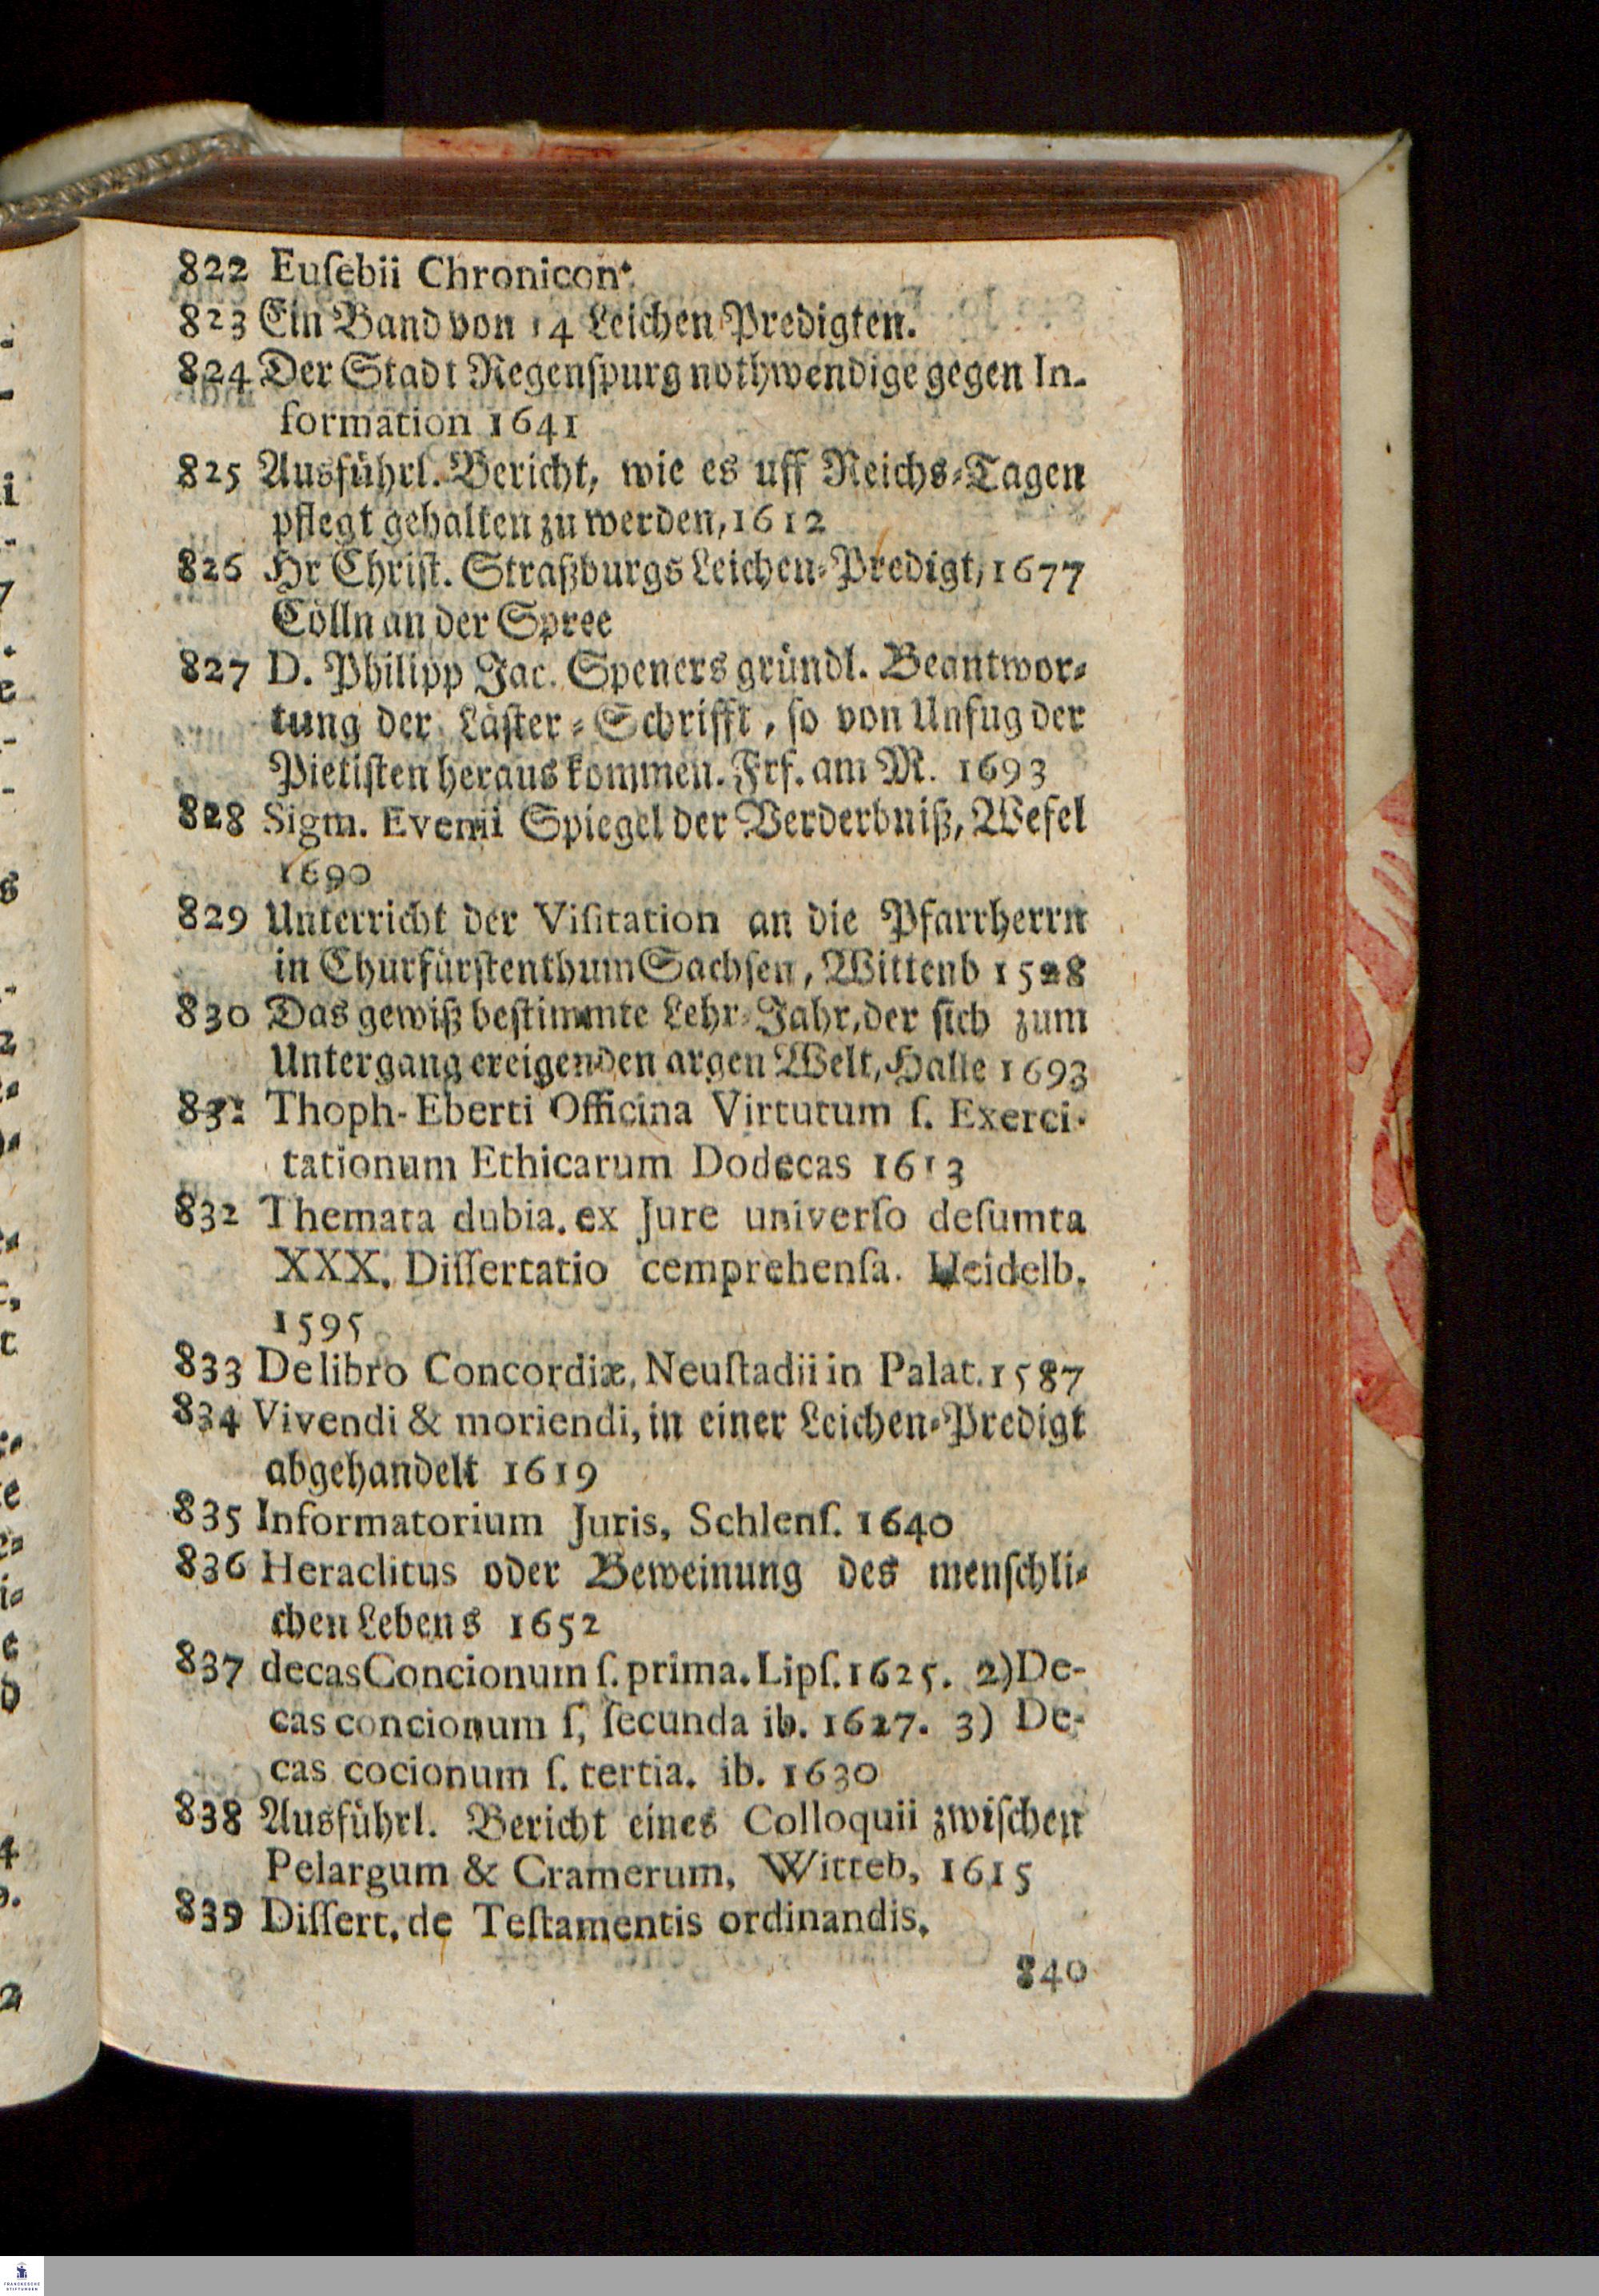 822 Euſebii Chronicon.
823 Ein Band von 14 Leichen Predigten.
824 Der Stadt Regenſpurg nothwendige gegen In-
formation 1641
825 Ausführl. Bericht, wie es uff Reichs-Tagen
pflegt gehalten zu werden, 1612
826 Hr Chriſt. Straßburgs Leichen-Predigt, 1677
Cölln an der Spree
827 D. Philipp Jac. Speners gründl. Beantwor-
tung der Läſter-Schrifft, ſo von Unfug der
Pietiſten heraus kommen. Frf. am M. 1693
828 Sigm. Evenii Spiegel der Verderbniß, Weſel
1690
829 Unterricht der Viſitation an die Pfarrherrn
in Churfürſtenthum Sachſen, Wittenb 1528
830 Das gewiß beſtimmte Lehr-Jahr, der ſich zum
Untergang ereigenden argen Welt, Halle 1693
831 Thoph-Eberti Officina Virtutum ſ. Exerci-
tationum Ethicarum Dodecas 1613
832 Themata dubia. ex Jure univerſo deſumta
XXX. Diſſertatio cemprehenſa. Heidelb.
1595
833 De libro Concordiæ, Neuſtadii in Palat. 1587
834 Vivendi & moriendi, in einer Leichen-Predigt
abgehandelt 1619
835 Informatorium Juris, Schlenſ. 1640
836 Heraclitus oder Beweinung des menſchli-
chen Lebens 1652
837 decas Concionum ſ. prima. Lipſ. 1625. 2) De-
cas concionum ſ, ſecunda ib. 1627. 3) De-
cas cocionum ſ. tertia. ib. 1630
838 Ausführl. Bericht eines Colloquii zwiſchen
Pelargum & Cramerum, Witteb, 1615
839 Diſſert. de Teſtamentis ordinandis.
840
FRANCKESCHE
STIFTUNGEN